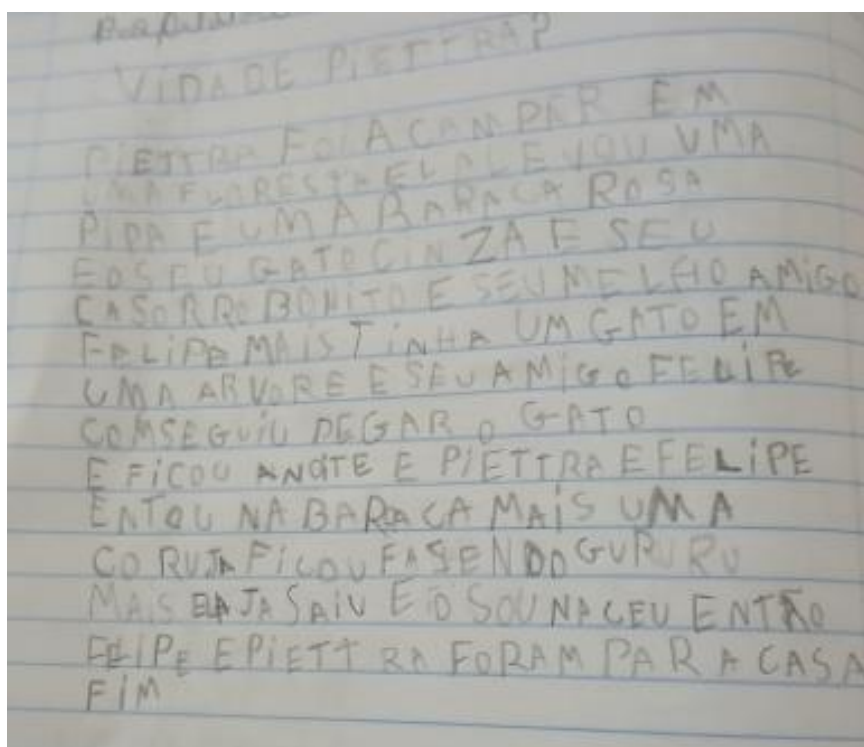 VIDA DE PIETTRA?
PIETTRA FOI ACAMPAR EM
UMA FLORESTA ELA LEVOU UMA
PIPA E UMA BARACA ROSA
E O SEU GATO CINZA E SEU
CASORRO BONITO E SEU MELHIO AMIGO
FELIPE MAIS TINHA UM GATO EM
UMA ARVORE E SEU AMIGO FELIPE
COMSEGUIU PEGAR O GATO
E FICOU ANOITE E PIETTRA E FELIPE
ENTOU NA BARACA MAIS UMA
CORUJA FICOU FASENDO GURURU
MAIS ELA JA SAIU E O SOU NACEU ENTÃO
FELIPE E PIETTRA FORAM PARA CASA
FIM